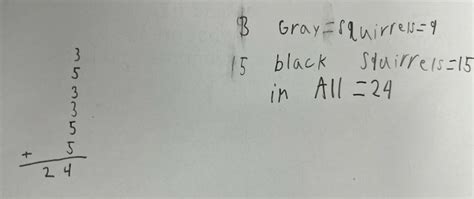 3
5
3
3
5
+ 5
24
Gray=squirrels=9
15 black squirrels=15
in All=24